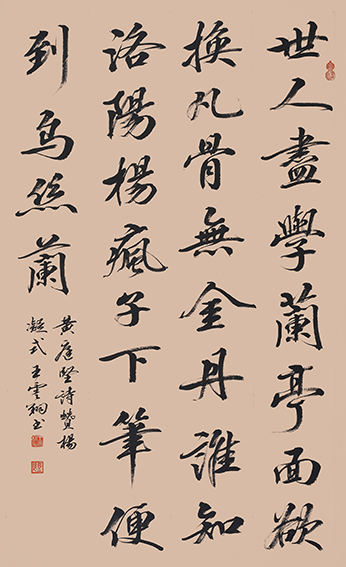 世人盡學蘭亭面欲
換凡骨無金丹誰知
洛陽楊瘋子下筆便
到烏絲蘭
黄庭堅詩贊楊
凝式王雲翔書